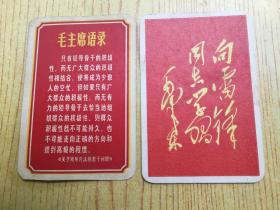 毛主席语录
只有领导骨干的积极
性，而无广大群众的积极
性相结合，便将成为少数
人的空忙。但如果只有广
大群众的积极性，而无有
力的领导骨干去恰当地组
织群众的积极性，则群众
积极性既不可能持久，也
不可能走向正确的方向和
提到高级的程度。
《关于领导方法的若干问题》
向雷锋
同志学习
毛泽东